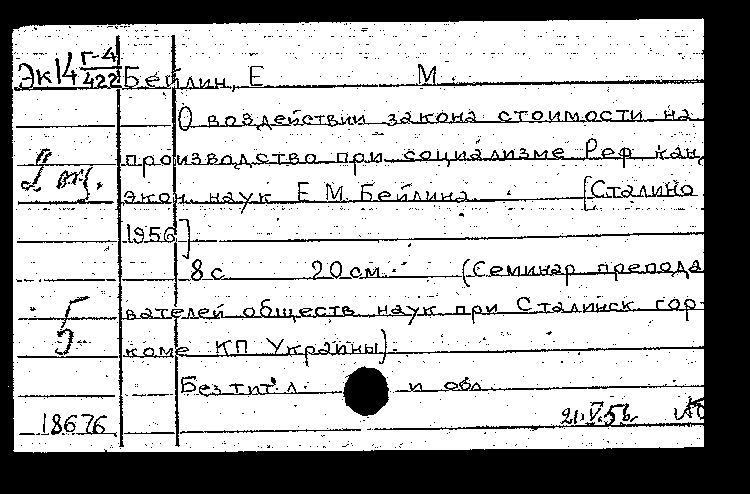 Эк14 Г-4/422 Бейлин, Е М.
О воздействии закона стоимости на
производство при социализме Реф кан.
2 экз.
экон. наук Е М. Бейлина. [Сталино
1956]
8 с 20 см. (Семинар препода
вателей обществ наук при Сталинск гор-
5
коме КП Украины).
Без тит. л. и обл.
18676 21.V.56